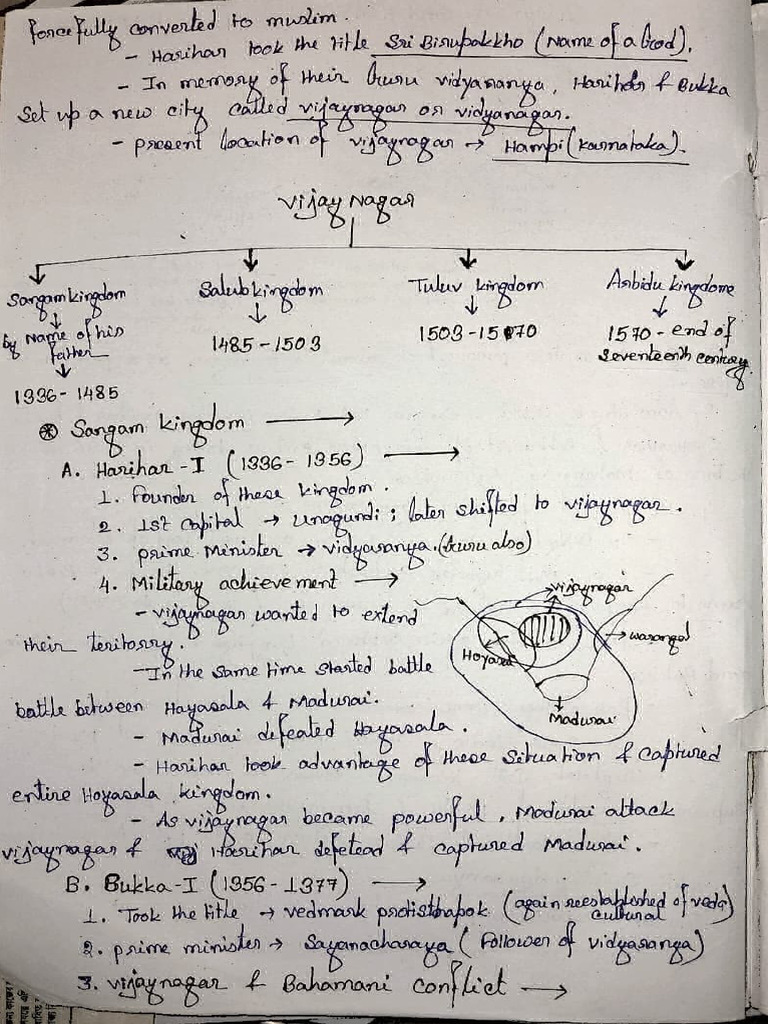 forcefully converted to muslim.
- Harihar took the title Sri Birupakkho (Name of a God).
- In memory of their Guru vidyaranya, Harihar & Bukka
Set up a new city called vijaynagar or vidyanagar.
- present location of vijaynagar → Hampi (Karnataka).
vijay Nagar
Sangam kingdom Salub kingdom Tuluv kingdom Arbidu kingdome
by Name of his father 1485 - 1503 1503 - 1570 1570 - end of seventeenth century
1336 - 1485
Sangam kingdom →
A. Harihar - I (1336 - 1356) →
1. Founder of these kingdom.
2. 1st Capital → Unagundi ; later shifted to vijaynagar.
3. prime Minister → vidyaranya. (Guru also)
4. Military achievement →
- vijaynagar wanted to extend
their teritorry.
- In the same time started battle
battle between Hayasala & Madurai.
vijaynagar
warangal
Hoyasal
Madurai
- Madurai defeated Hayasala.
- Harihar took advantage of these Situation & captured
entire Hoyasala kingdom.
- As vijaynagar became powerful, Madurai attack
vijaynagar & Harihar defetead & captured Madurai.
B. Bukka - I (1356 - 1377) →
1. Took the title → vedmark protisthapok (again reestablished of veda cultural)
2. prime minister → Sayanacharaya (Follower of vidyaranga)
3. vijaynagar & Bahamani conflict →